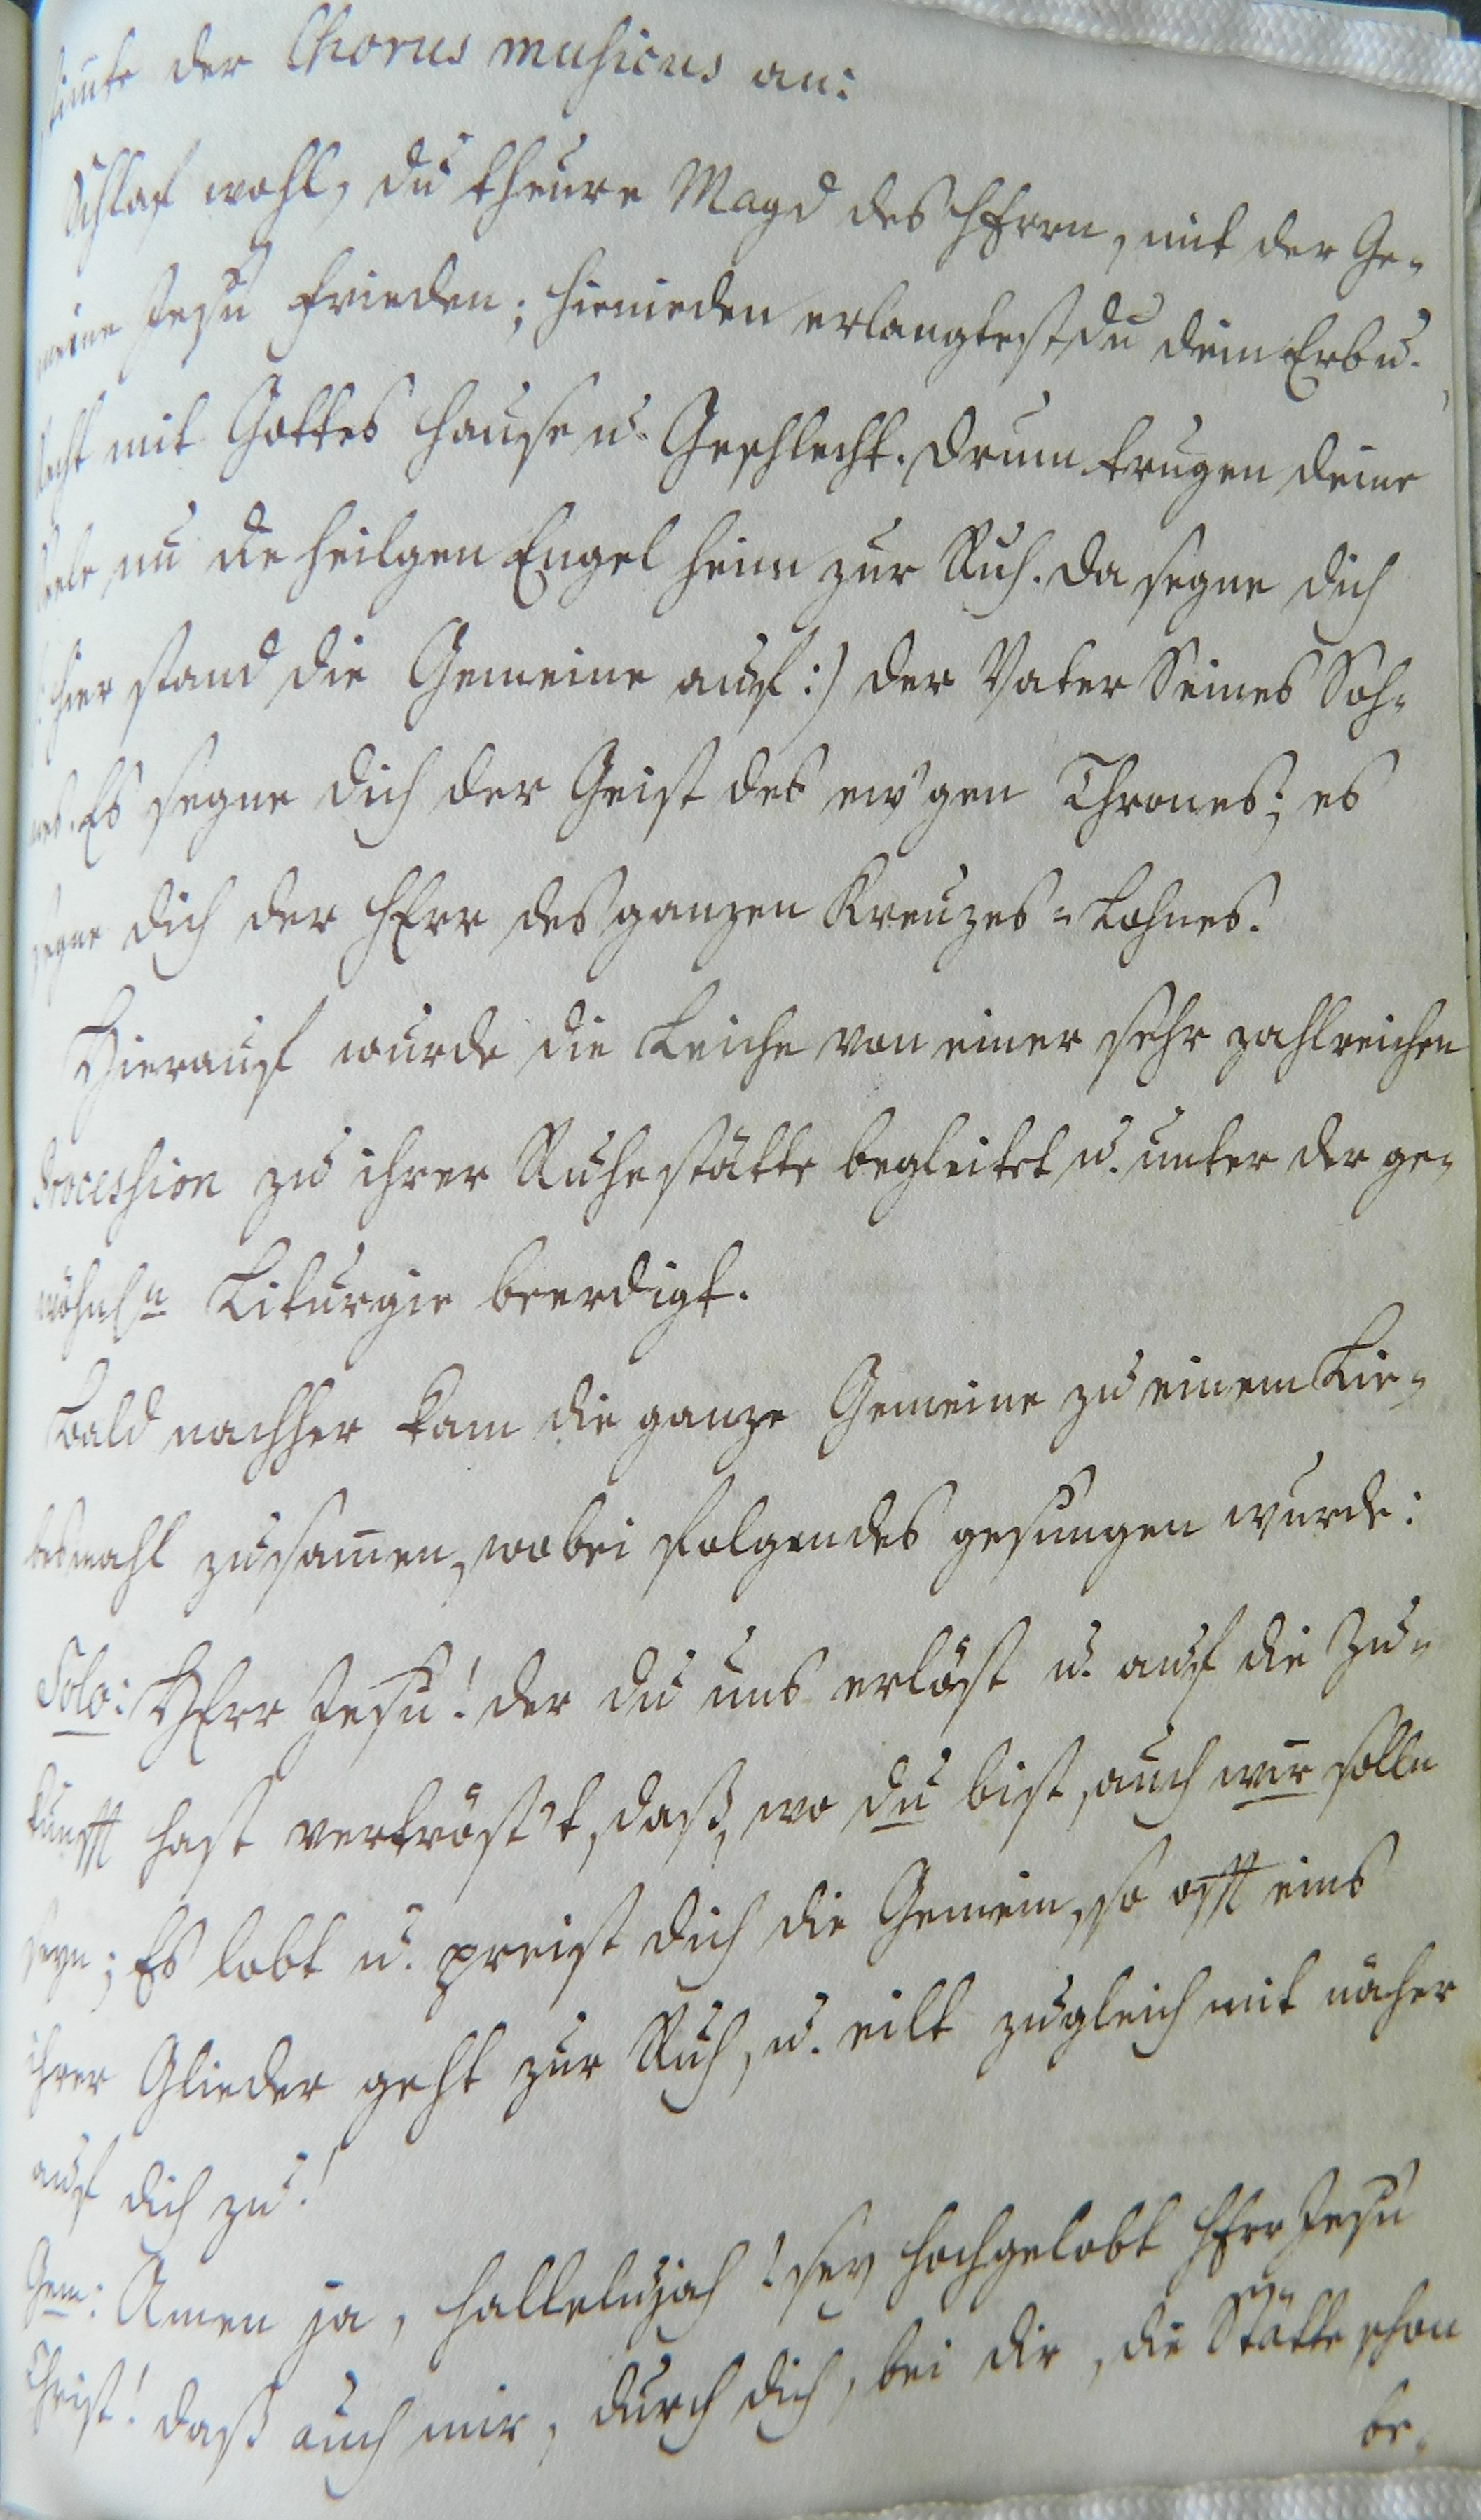 stimte der Chorus musicus an:
Schlaf wohl, du theure Magd des HErrn, mit der Ge-
meine Jesu Frieden; hienieden erlangtest du dein Erb u.
Recht mit Gottes Hause u. Geschlecht. Drum trugen deine
Seele nu de heilgen Engel heim zur Ruh. Da segne dich
(: hier stand die Gemeine auf :) der Vater Seines Soh-
nes. Es segne dich der Geist des ew'gen Thrones; es
segne dich der HErr des ganzen Kreuzes-Lohnes.
Hierauf wurde die Leiche von einer sehr zahlreichen
Procession zu ihrer Ruhestätte begleitet u. unter der ge-
wöhnl.n Liturgie beerdigt.
Bald nachher kam die ganze Gemeine zu einem Lie-
besmahl zusam̄en, wobei folgendes gesungen wurde:
Solo: HErr Jesu! der du uns erlöst u. auf die Zu-
kunfft hast vertröst't, daß, wo du bist, auch wir solln
seyn; Es lobt u. preist dich die Gemein, so offt eins
ihrer Glieder geht zur Ruh, u. eilt zugleich mit näher
auf dich zu!
Gem: Amen ja, Hallelujah! sey hochgelobt HErr Jesu
Christ! daß auch mir, durch dich, bei dir, die Stätte schon
be-